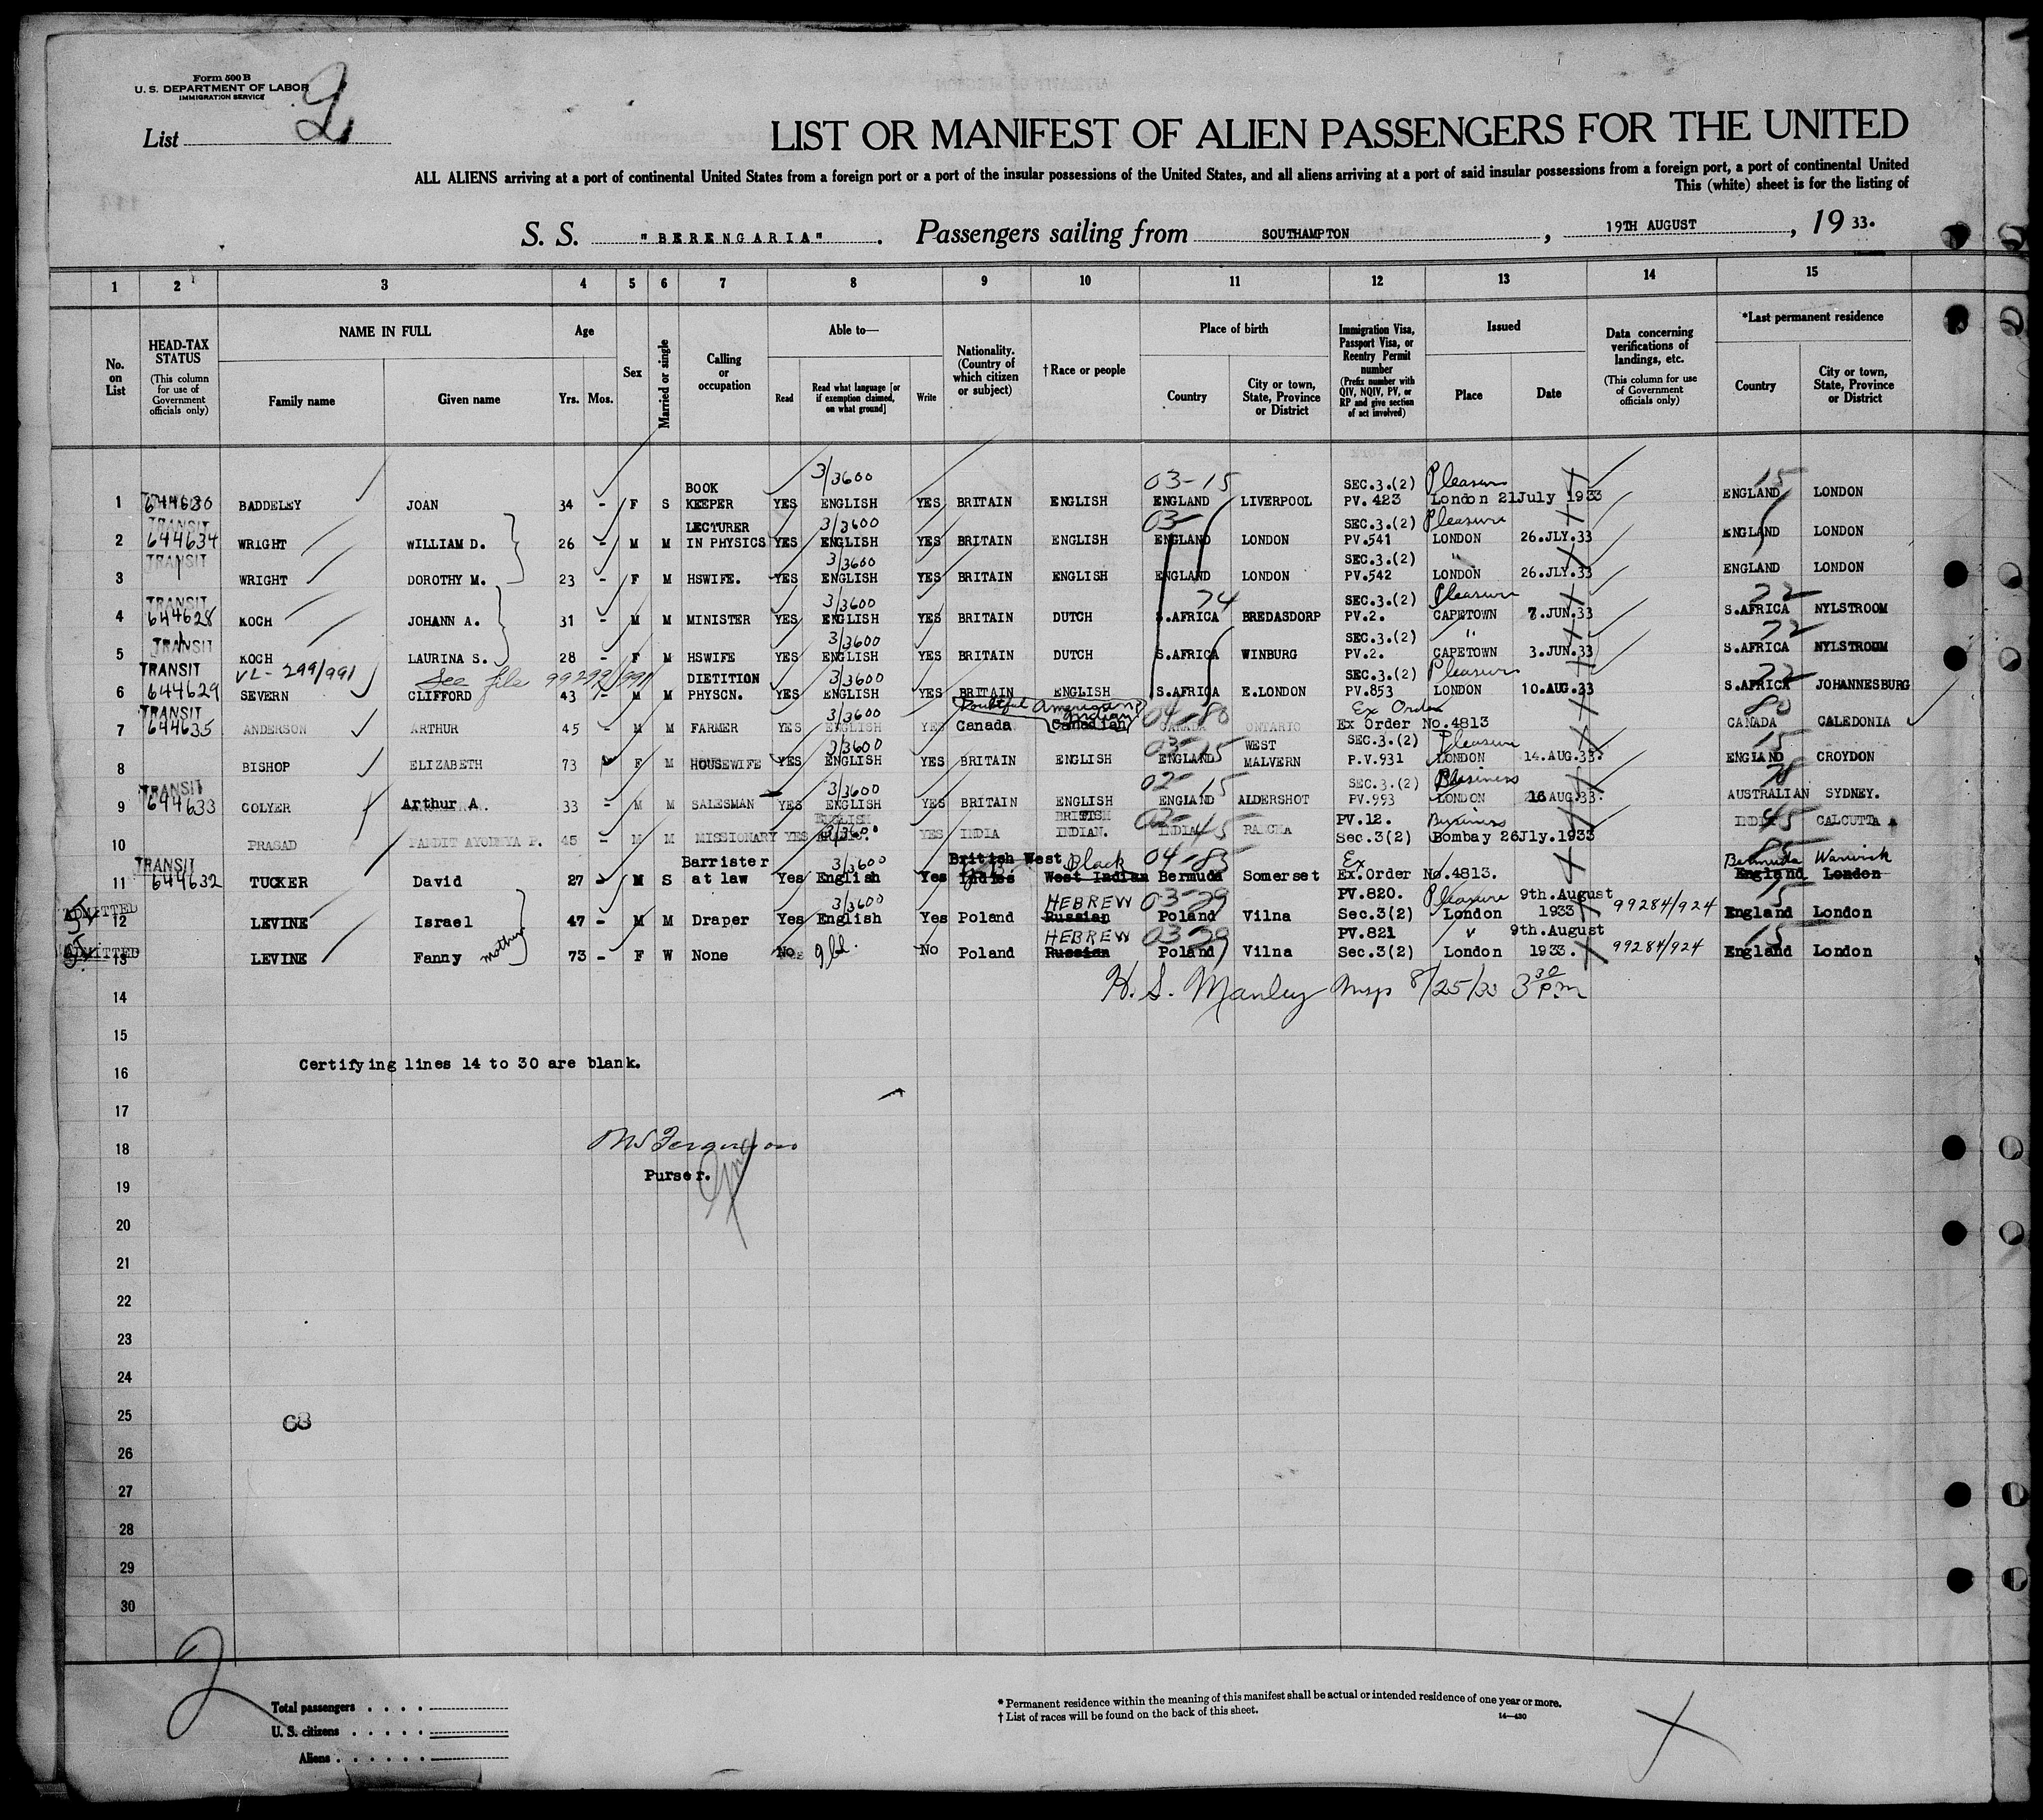 Form 500 B
U. S. DEPARTMENT OF LABOR
IMMIGRATION SERVICE
List 2
LIST OR MANIFEST OF ALIEN PASSENGERS FOR THE UNITED
ALL ALIENS arriving at a port of continental United States from a foreign port or a port of the insular possessions of the United States, and all aliens arriving at a port of said insular possessions from a foreign port, a port of continental United
This (white) sheet is for the listing of
S. S. "BERENGARIA". Passengers sailing from SOUTHAMPTON, 19TH AUGUST, 1933.
1 2 3 4 5 6 7 8 9 10 11 12 13 14 15
No. on List
HEAD-TAX STATUS (This column for use of Government officials only)
NAME IN FULL
Family name
Given name
Age
Yrs. Mos.
Sex
Married or single
Calling or occupation
Able to—
Read
Read what language [or if exemption claimed, on what ground]
Write
Nationality. (Country of which citizen or subject)
†Race or people
Place of birth
Country
City or town, State, Province or District
Immigration Visa, Passport Visa, or Reentry Permit number (Prefix number with QIV, NQIV, PV, or RP and give section of act involved)
Issued
Place
Date
Data concerning verifications of landings, etc. (This column for use of Government officials only)
*Last permanent residence
Country
City or town, State, Province or District
1 644630 BADDELEY JOAN 34 - F S BOOK KEEPER YES 3/3600 ENGLISH YES BRITAIN ENGLISH 03-15 ENGLAND LIVERPOOL SEC.3.(2) PV. 423 Pleasure London 21July 1933 15 ENGLAND LONDON
2 TRANSIT 644634 WRIGHT WILLIAM D. 26 - M M LECTURER IN PHYSICS YES 3/3600 ENGLISH YES BRITAIN ENGLISH 03- ENGLAND LONDON SEC.3.(2) PV.541 Pleasure LONDON 26.JLY.33 ENGLAND LONDON
3 TRANSIT WRIGHT DOROTHY M. 23 - F M HSWIFE. YES 3/3600 ENGLISH YES BRITAIN ENGLISH ENGLAND LONDON SEC.3.(2) PV.542 " LONDON 26.JLY.33 ENGLAND LONDON
4 TRANSIT 644628 KOCH JOHANN A. 31 - M M MINISTER YES 3/3600 ENGLISH YES BRITAIN DUTCH 74 S.AFRICA BREDASDORP SEC.3.(2) PV.2. Pleasure CAPETOWN 7.JUN.33 72 S.AFRICA NYLSTROOM
5 TRANSIT KOCH LAURINA S. 28 - F M HSWIFE YES 3/3600 ENGLISH YES BRITAIN DUTCH S.AFRICA WINBURG SEC.3.(2) PV.2. " CAPETOWN 3.JUN.33 72 S.AFRICA NYLSTROOM
TRANSIT VL- 299/991 See file 99299/991
6 644629 SEVERN CLIFFORD 43 - M M DIETITION PHYSCN. YES 3/3600 ENGLISH YES BRITAIN ENGLISH S.AFRICA E.LONDON SEC.3.(2) PV.853 Pleasure LONDON 10.AUG.33 72 S.AFRICA JOHANNESBURG
7 TRANSIT 644635 ANDERSON ARTHUR 45 - M M FARMER YES 3/3600 ENGLISH YES Canada Doubtful American Indian Canadian 04-80 CANADA ONTARIO Ex Order Ex Order No.4813 80 CANADA CALEDONIA
8 BISHOP ELIZABETH 73 F M HOUSEWIFE YES 3/3600 ENGLISH YES BRITAIN ENGLISH 03-15 ENGLAND WEST MALVERN SEC.3.(2) P.V.931 Pleasure LONDON 14.AUG.33. 15 ENGLAND CROYDON
9 TRANSIT 644633 COLYER Arthur A. 33 - M M SALESMAN YES 3/3600 ENGLISH YES BRITAIN ENGLISH 02-15 ENGLAND ALDERSHOT SEC.3.(2) PV.993 Business LONDON 16 AUG.33. AUSTRALIAN SYDNEY.
10 PRASAD PANDIT AYODHYA P. 45 - M M MISSIONARY YES ENGLISH 3/3600 YES INDIA BRITISH INDIAN. 02-45 INDIA RANCHA PV.12. Sec.3(2) Business Bombay 26Jly.1933 45 INDIA CALCUTTA
11 TRANSIT 644632 TUCKER David 27 - M S Barrister at law Yes 3/3600 English Yes British West Indies Black West Indian 04-85 Bermuda Somerset Ex Ex.Order No.4813. 85 Bermuda Warwick England London
12 ADMITTED LEVINE Israel 47 - M M Draper Yes 3/3600 English Yes Poland HEBREW Russian 03-29 Poland Vilna PV.820. Sec.3(2) Pleasure London 9th.August 1933 99284/924 15 England London
13 ADMITTED LEVINE Fanny mother 73 - F W None No No Poland HEBREW Russian 03-29 Poland Vilna PV.821 Sec.3(2) " London 9th.August 1933. 99284/924 15 England London
14 H. S. Manley Insp 8/25/33 3 30 P.m
15
16 Certifying lines 14 to 30 are blank.
17
18 Ferguson
19 Purser.
20
21
22
23
24
25 68
26
27
28
29
30
2
Total passengers . . . .
U. S. citizens . . . . .
Aliens . . . . . .
* Permanent residence within the meaning of this manifest shall be actual or intended residence of one year or more.
† List of races will be found on the back of this sheet.
14—430